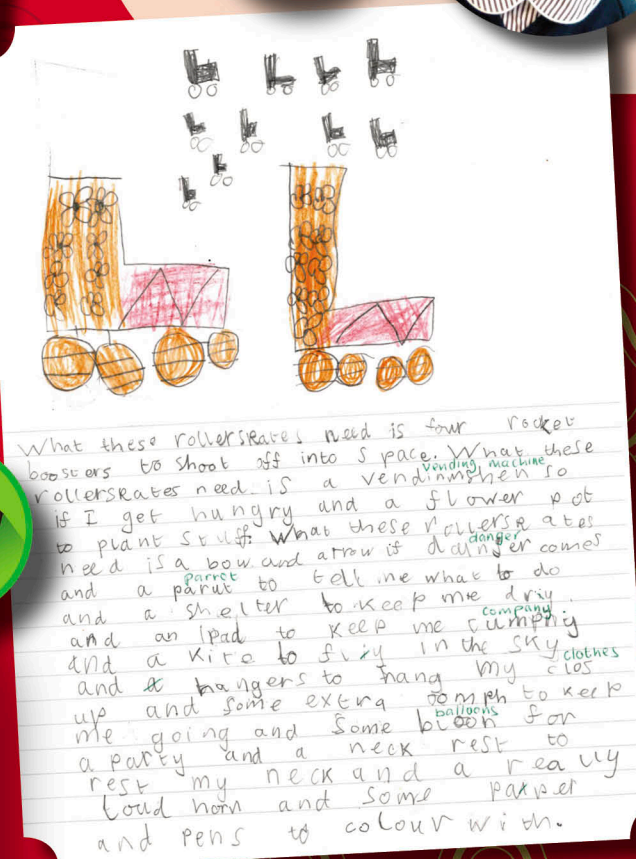 What these rollerskates need is four rocket
boosters to shoot off into space. What these
vending machine
rollerskates need is a vendinmshen so
if I get hungry and a flower pot
to plant stuff. What these rollerskates
danger
need is a bow and arrow if dainger comes
parrot
and a parut to tell me what to do
and a shelter to keep me driy.
company
and an Ipad to keep me cumpniy
and a kite to fliy in the sky
clothes
and a hangers to hang my clos
up and some extra oomph to keep
balloons
me going and some bloon for
a party and a neck rest to
rest my neck and a really
loud horn and some patper
and pens to colour with.